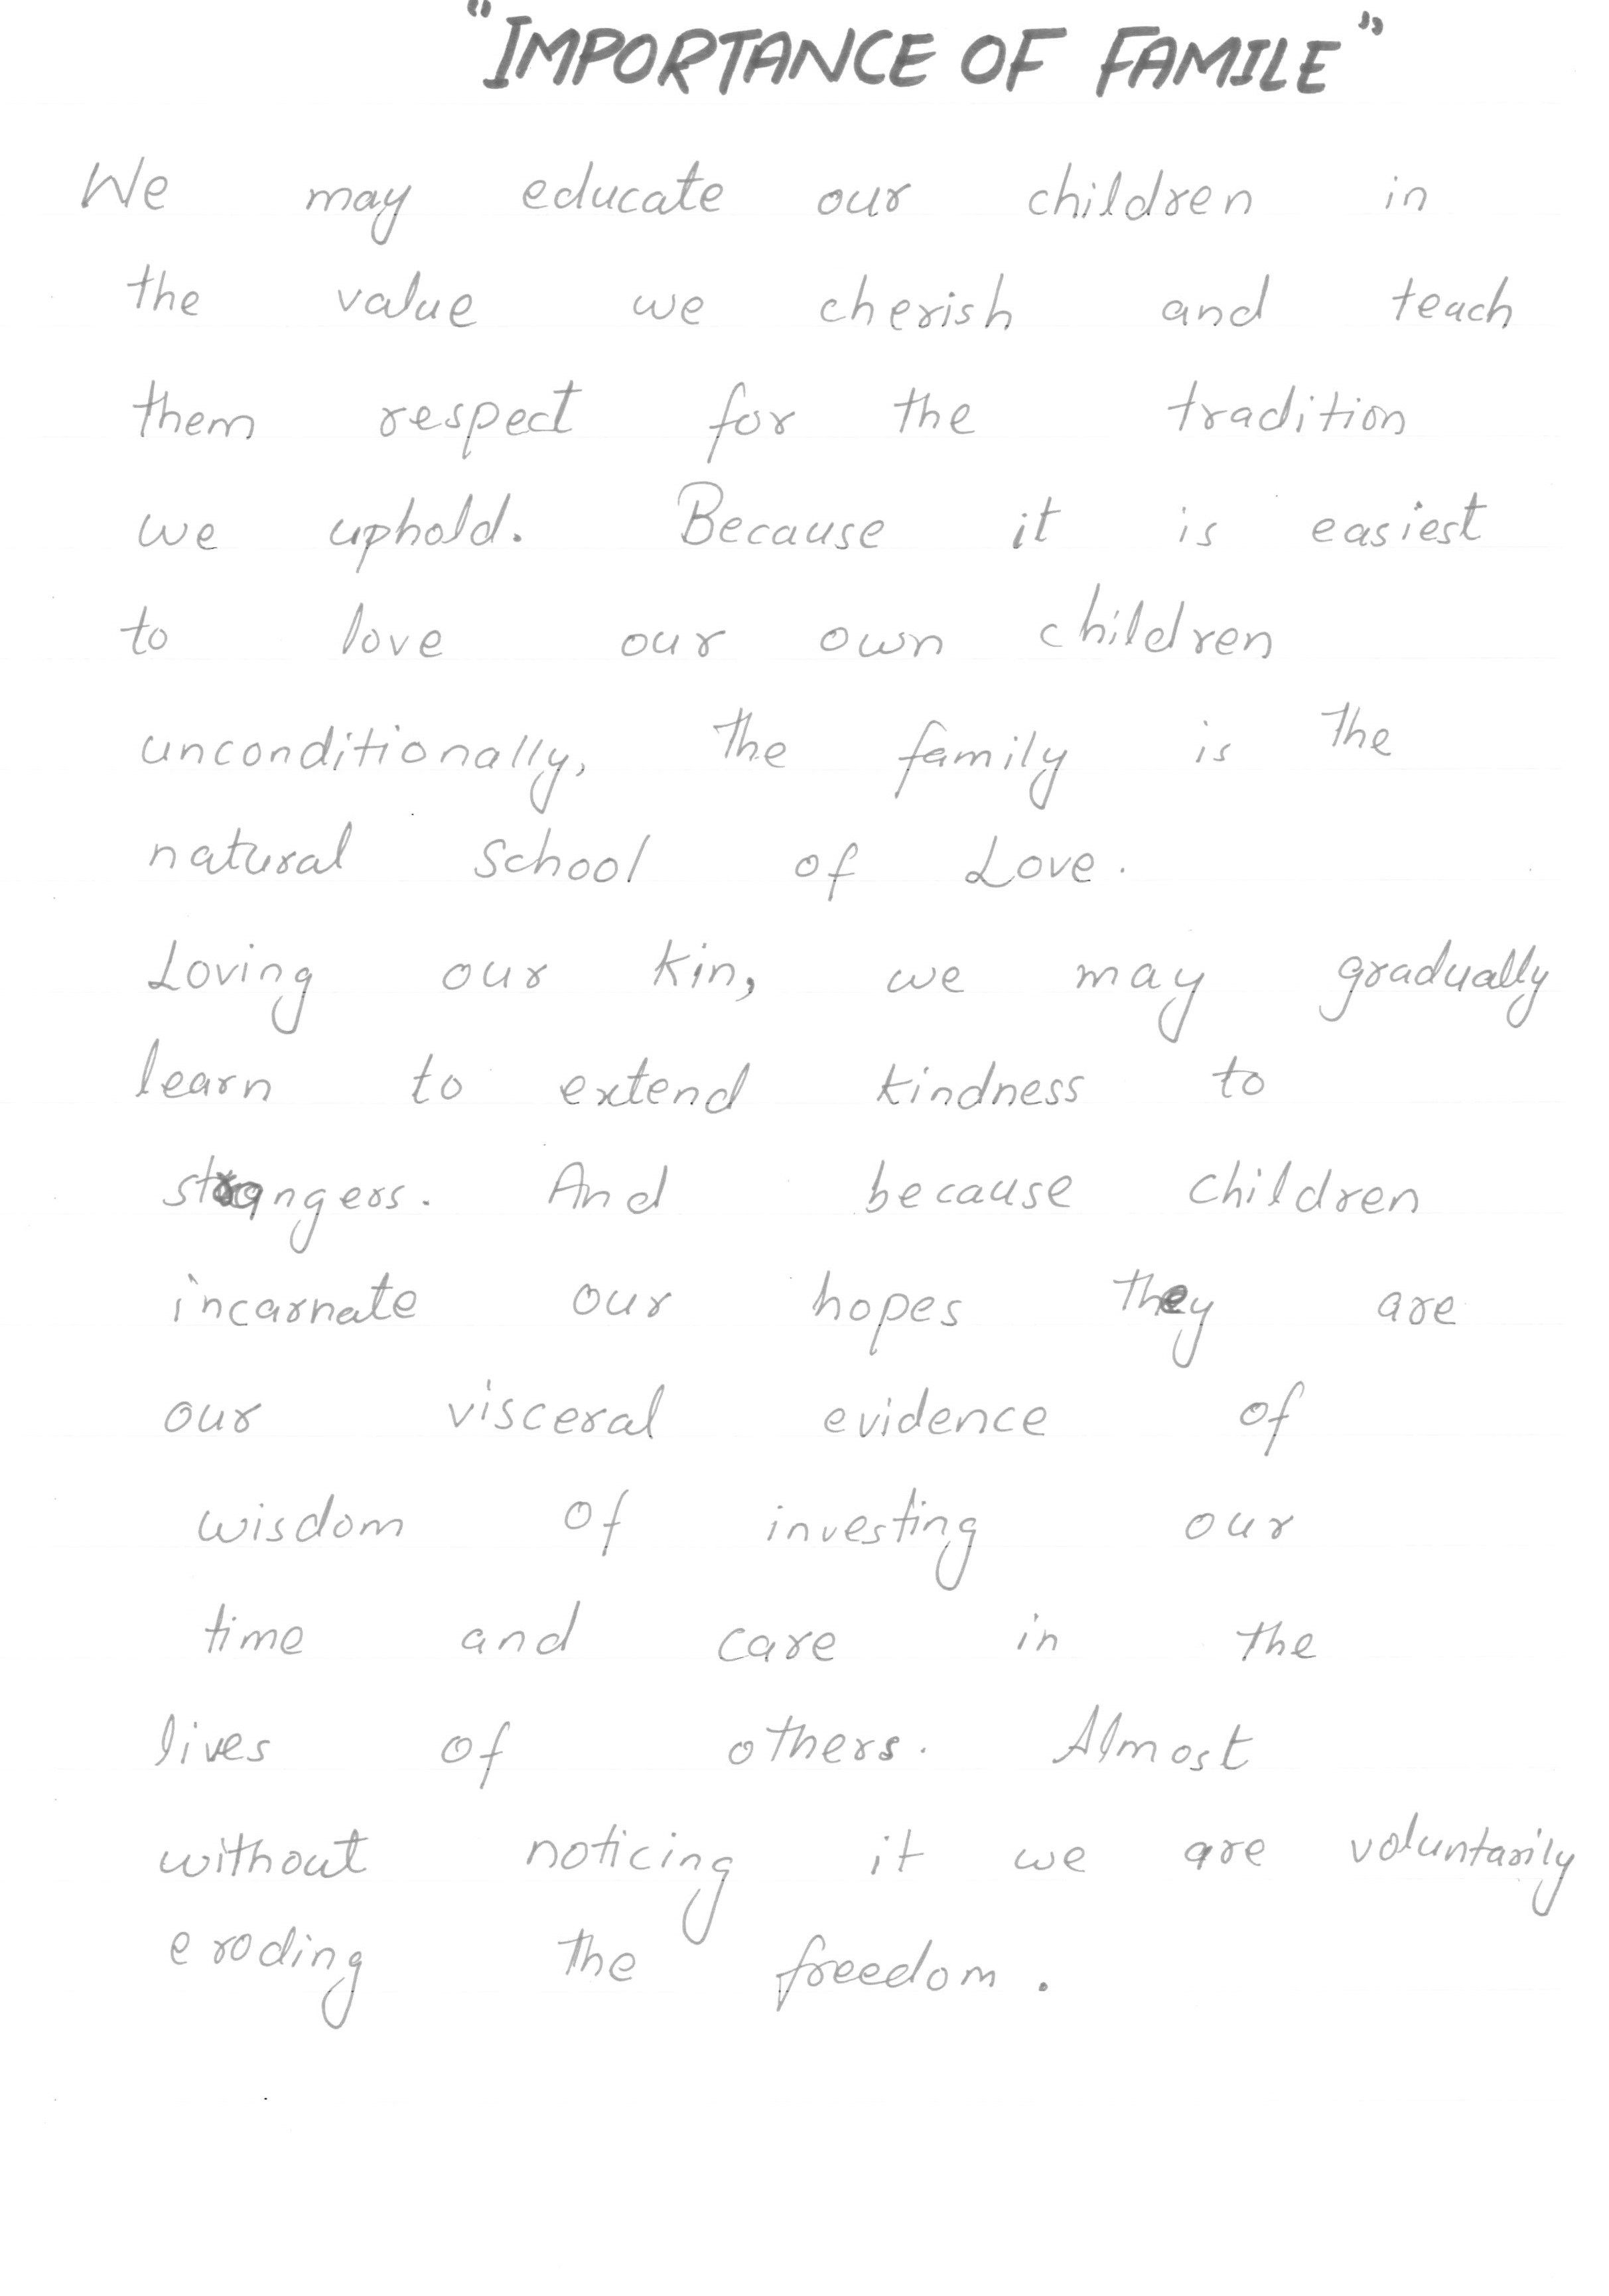 "IMPORTANCE OF FAMILE"
We may educate our children in
the value we cherish and teach
them respect for the tradition
we uphold. Because it is easiest
to love our own children
unconditionally, the family is the
natural school of Love.
Loving our kin, we may gradually
learn to extend kindness to
strangers. And because children
incarnate our hopes they are
our visceral evidence of
wisdom of investing our
time and care in the
lives of others. Almost
without noticing it we are voluntarily
eroding the freedom.